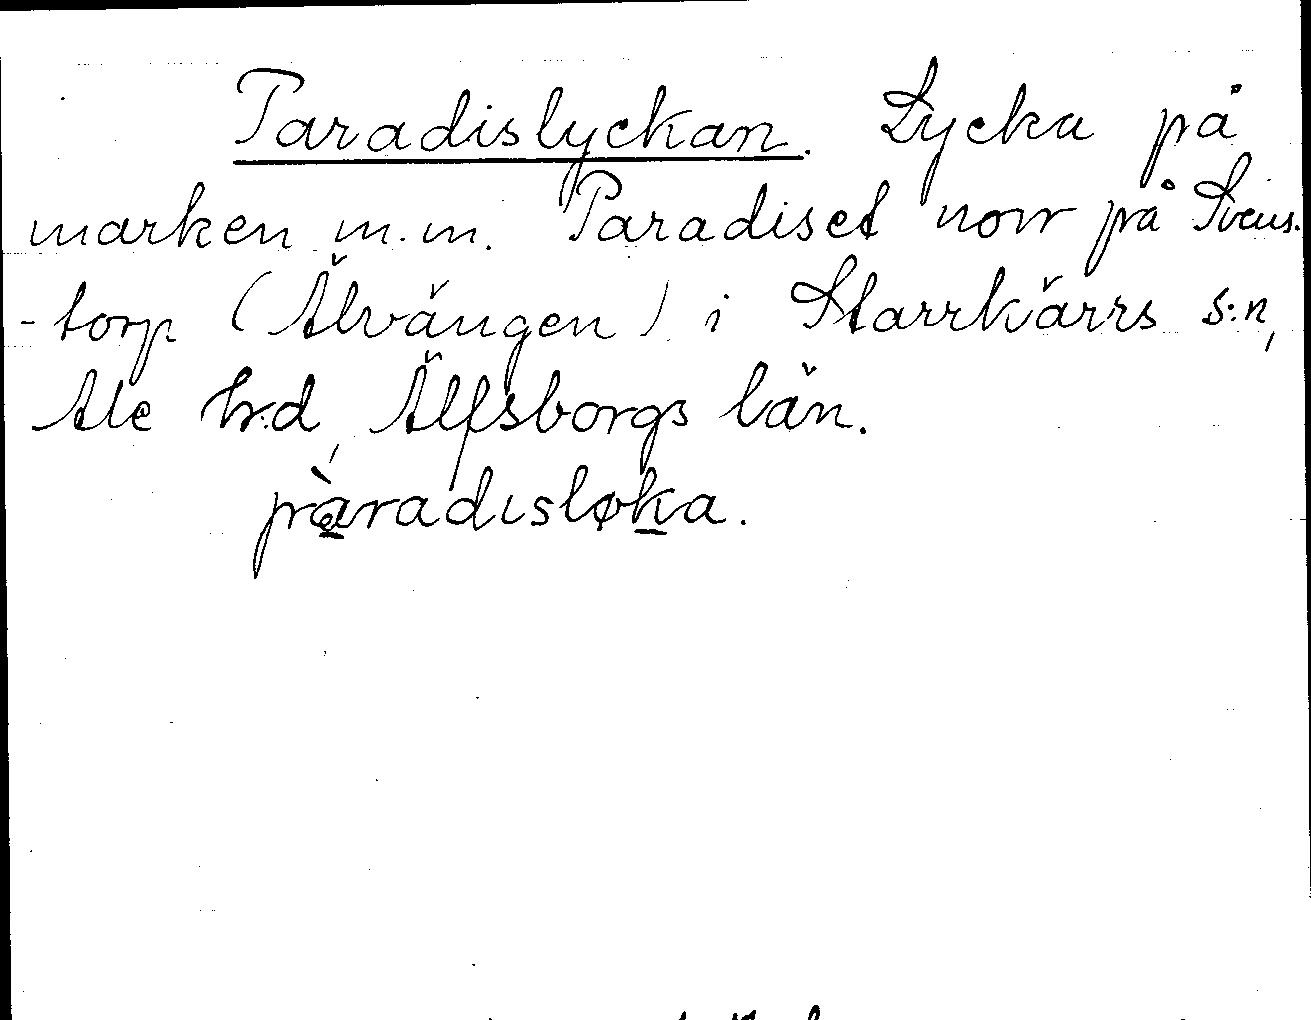 Paradislyckan. Lycka på
marken m.m. Paradiset norr på Svens-
-torp (Älvängen) i Starrkärrs s:n,
Ale h:d, Älfsborgs län.
pàradisløka.